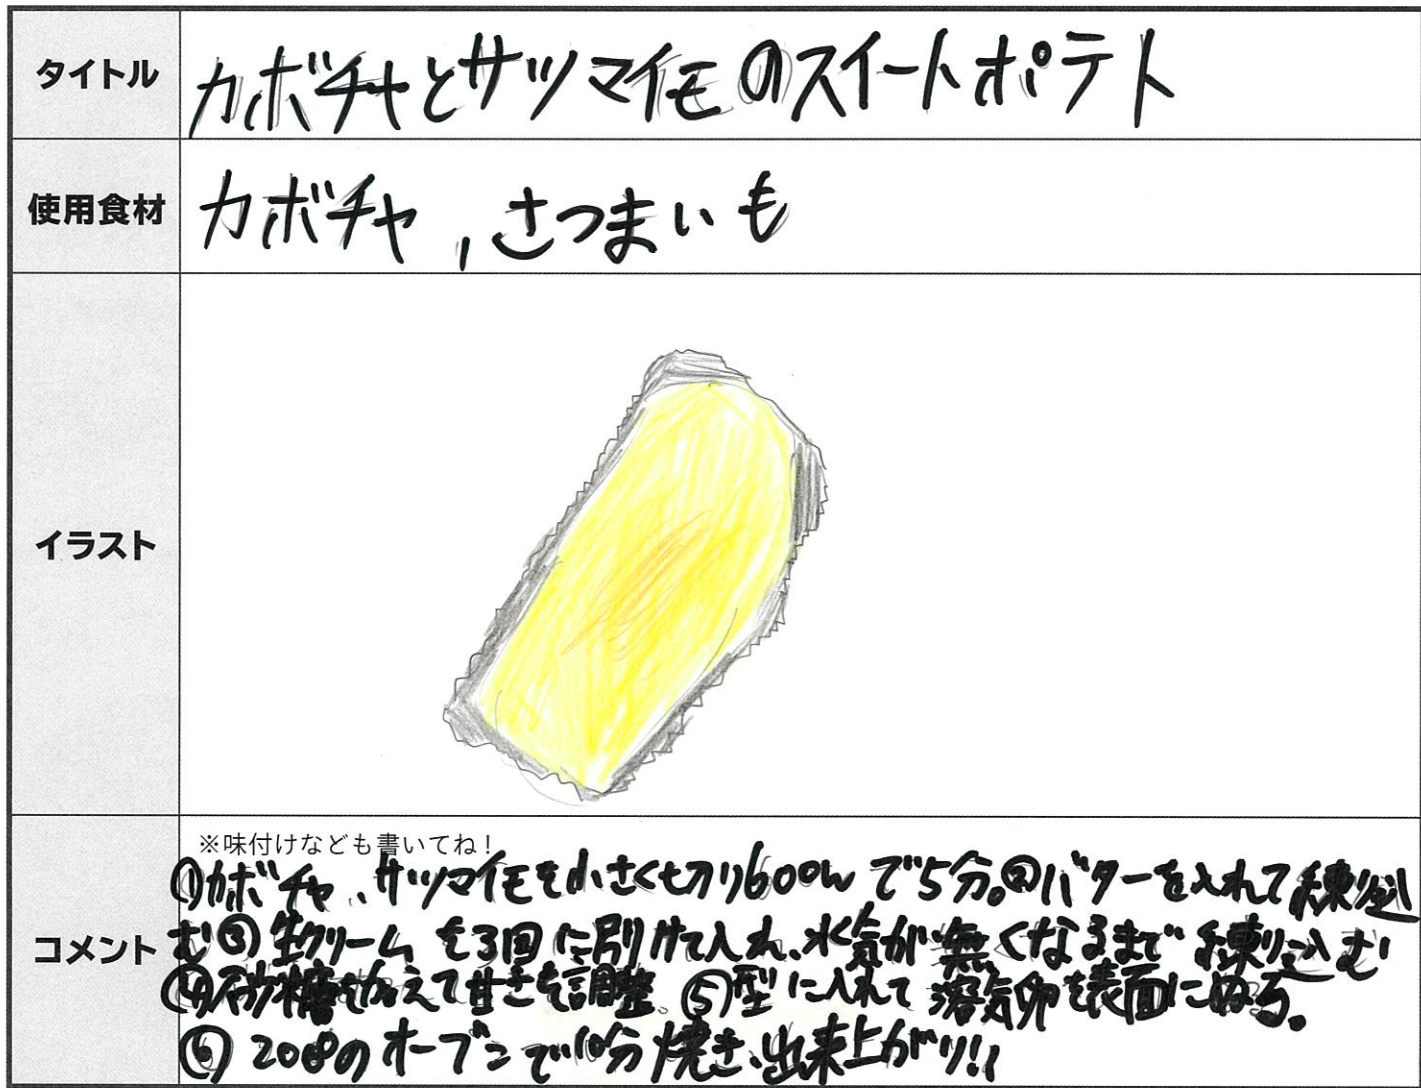 タイトル
カボチャとサツマイモのスイートポテト
使用食材
カボチャ,さつまいも
イラスト
コメント
※味付けなども書いてね!
①カボチャ、サツマイモを小さく切り600wで5分。②バターを入れて練り込
む③生クリームを3回に別けて入れ、水気が無くなるまで練り込む
④砂糖を加えて甘さを調整⑤型に入れて溶気卵を表面にぬる。
⑥200のオーブンで10分焼き、出来上がり!!